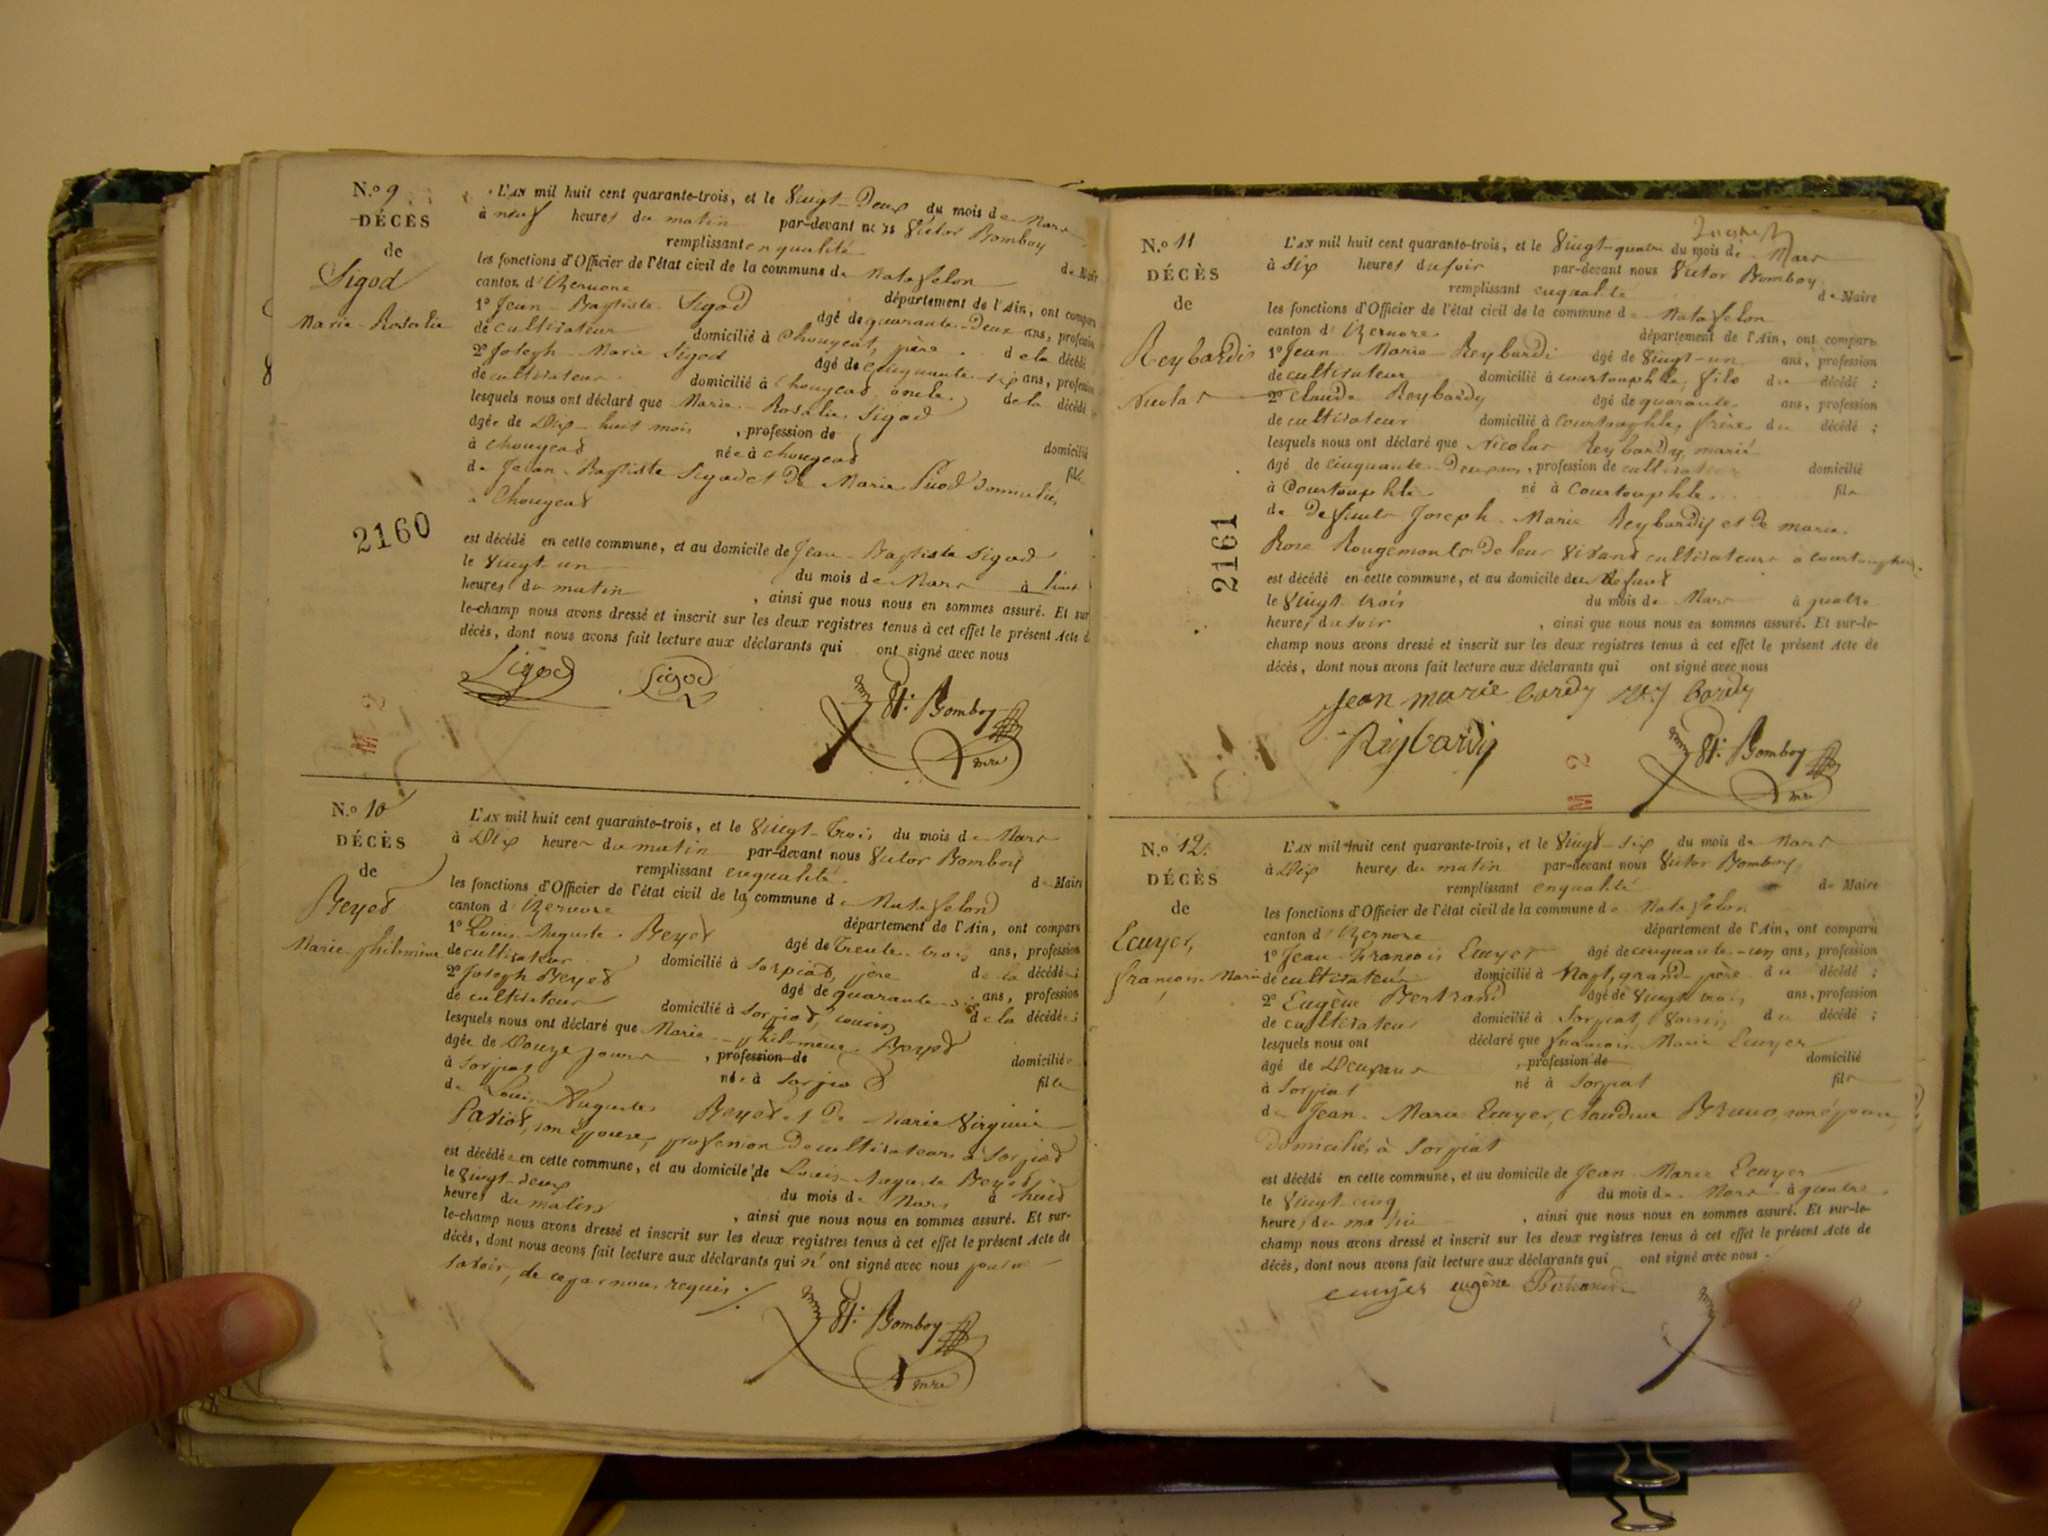 N.o 9
DÉCÈS
de
Sigod
Marie-Rosalie
L'AN mil huit cent quarante-trois, et le Vingt-Deux du mois de Mars
à neuf heures du matin par-devant nous Victor Bomboy
remplissant en qualité de Maire
les fonctions d'Officier de l'état civil de la commune de Nataselon
canton d'Izernore département de l'Ain, ont comparu
1o Jean-Baptiste Sigod âgé de quarante-Deux ans, profession
de cultivateur domicilié à Chougeat, père de la décédé
2o Joseph-Marie Sigod âgé de cinquante-six ans, profession
de cultivateur domicilié à Chougeat oncle de la décédé
lesquels nous ont déclaré que Marie-Rosalie Sigod
âgée de Dix-huit mois, profession de domicilié
à Chougeat née à Chougeat fille
de Jean-Baptiste Sigod et De Marie domicilié
à Chougeat
2160
est décédé en cette commune, et au domicile de Jean-Baptiste Sigod
le Vingt-un du mois de Mars à huit
heures du matin, ainsi que nous nous en sommes assuré. Et sur
le-champ nous avons dressé et inscrit sur les deux registres tenus à cet effet le présent Acte de
décès, dont nous avons fait lecture aux déclarants qui ont signé avec nous
Sigod Sigod Vr. Bomboy
mre
M 2
N.o 10
DÉCÈS
de
Beyet
Marie philomine
L'AN mil huit cent quarante-trois, et le Vingt-Trois du mois de Mars
à Dix heures du matin par-devant nous Victor Bomboy
remplissant en qualité de Maire
les fonctions d'Officier de l'état civil de la commune de Nataselon
canton d'Izernore département de l'Ain, ont comparu
1o Louis-Auguste Beyet âgé de Trente-trois ans, profession
de cultivateur domicilié à Sorpiat, père de la décédée;
2o Joseph Beyet âgé de quarante-six ans, profession
de cultivateur domicilié à Sorpiat, cousin de la décédée;
lesquels nous ont déclaré que Marie-philomine Beyet
âgée de Douze jours, profession de domiciliée
à Sorpiat née à Sorpiat fille
de Louis Auguste Beyet et De Marie Virginie
son épouse, profession De cultivateurs à Sorpiat
est décédée en cette commune, et au domicile de Louis-Auguste Beyet
le Vingt-deux du mois de Mars à huit
heures du matin, ainsi que nous nous en sommes assuré. Et sur-
le-champ nous avons dressé et inscrit sur les deux registres tenus à cet effet le présent Acte de
décès, dont nous avons fait lecture aux déclarants qui n'ont signé avec nous pour ne
savoir, de ce par nous requis ./.
Vr. Bomboy
mre
N.o 11
DÉCÈS
de
Reybardis
Nicolas
2161
L'AN mil huit cent quarante-trois, et le Vingt-quatre du mois de Mars
à Six heures du soir par-devant nous Victor Bomboy
remplissant en qualité de Maire
les fonctions d'Officier de l'état civil de la commune de Nataselon
canton d'Izernore département de l'Ain, ont comparu
1o Jean-Marie Reybardi âgé de Vingt-un ans, profession
de cultivateur domicilié à courtouphle, fils du décédé;
2o Claude Reybardy âgé de quarante ans, profession
de cultivateur domicilié à Courtouphle, frère du décédé;
lesquels nous ont déclaré que Nicolas Reybardy, marié
âgé de cinquante-Deux ans, profession de cultivateur domicilié
à Courtouphle né à Courtouphle fils
de Defunts Joseph-Marie Reybardy et De marie
Rose Rougemont De leur Vivant cultivateurs à courtouphle
est décédé en cette commune, et au domicile du Defunt
le Vingt trois du mois de Mars à quatre
heures du soir, ainsi que nous nous en sommes assuré. Et sur-le-
champ nous avons dressé et inscrit sur les deux registres tenus à cet effet le présent Acte de
décès, dont nous avons fait lecture aux déclarants qui ont signé avec nous
Jean marie bardy rey bardy
Reybardy Vr. Bomboy
mre
M 2
N.o 12.
DÉCÈS
de
Ecuyer,
françois-Marie
L'AN mil huit cent quarante-trois, et le Vingt-six du mois de Mars
à Dix heures du matin par-devant nous Victor Bomboy
remplissant en qualité de Maire
les fonctions d'Officier de l'état civil de la commune de Nataselon
canton d'Izernore département de l'Ain, ont comparu
1o Jean-francois Ecuyer âgé de cinquante-un ans, profession
de cultivateur domicilié à grand-père du décédé;
2o Eugène Bertrand âgé de Vingt trois ans, profession
de cultivateur domicilié à Sorpiat, Voisin du décédé;
lesquels nous ont déclaré que françois-Marie Ecuyer
âgé de Deux ans, profession de domicilié
à Sorpiat né à Sorpiat fils
de Jean-Marie Ecuyer, Claudine son épouse,
domiciliés à Sorpiat
est décédé en cette commune, et au domicile de Jean-Marie Ecuyer
le Vingt cinq du mois de Mars à quatre
heures du matin, ainsi que nous nous en sommes assuré. Et sur-le-
champ nous avons dressé et inscrit sur les deux registres tenus à cet effet le présent Acte de
décès, dont nous avons fait lecture aux déclarants qui ont signé avec nous
ecuyer eugène Bertrand